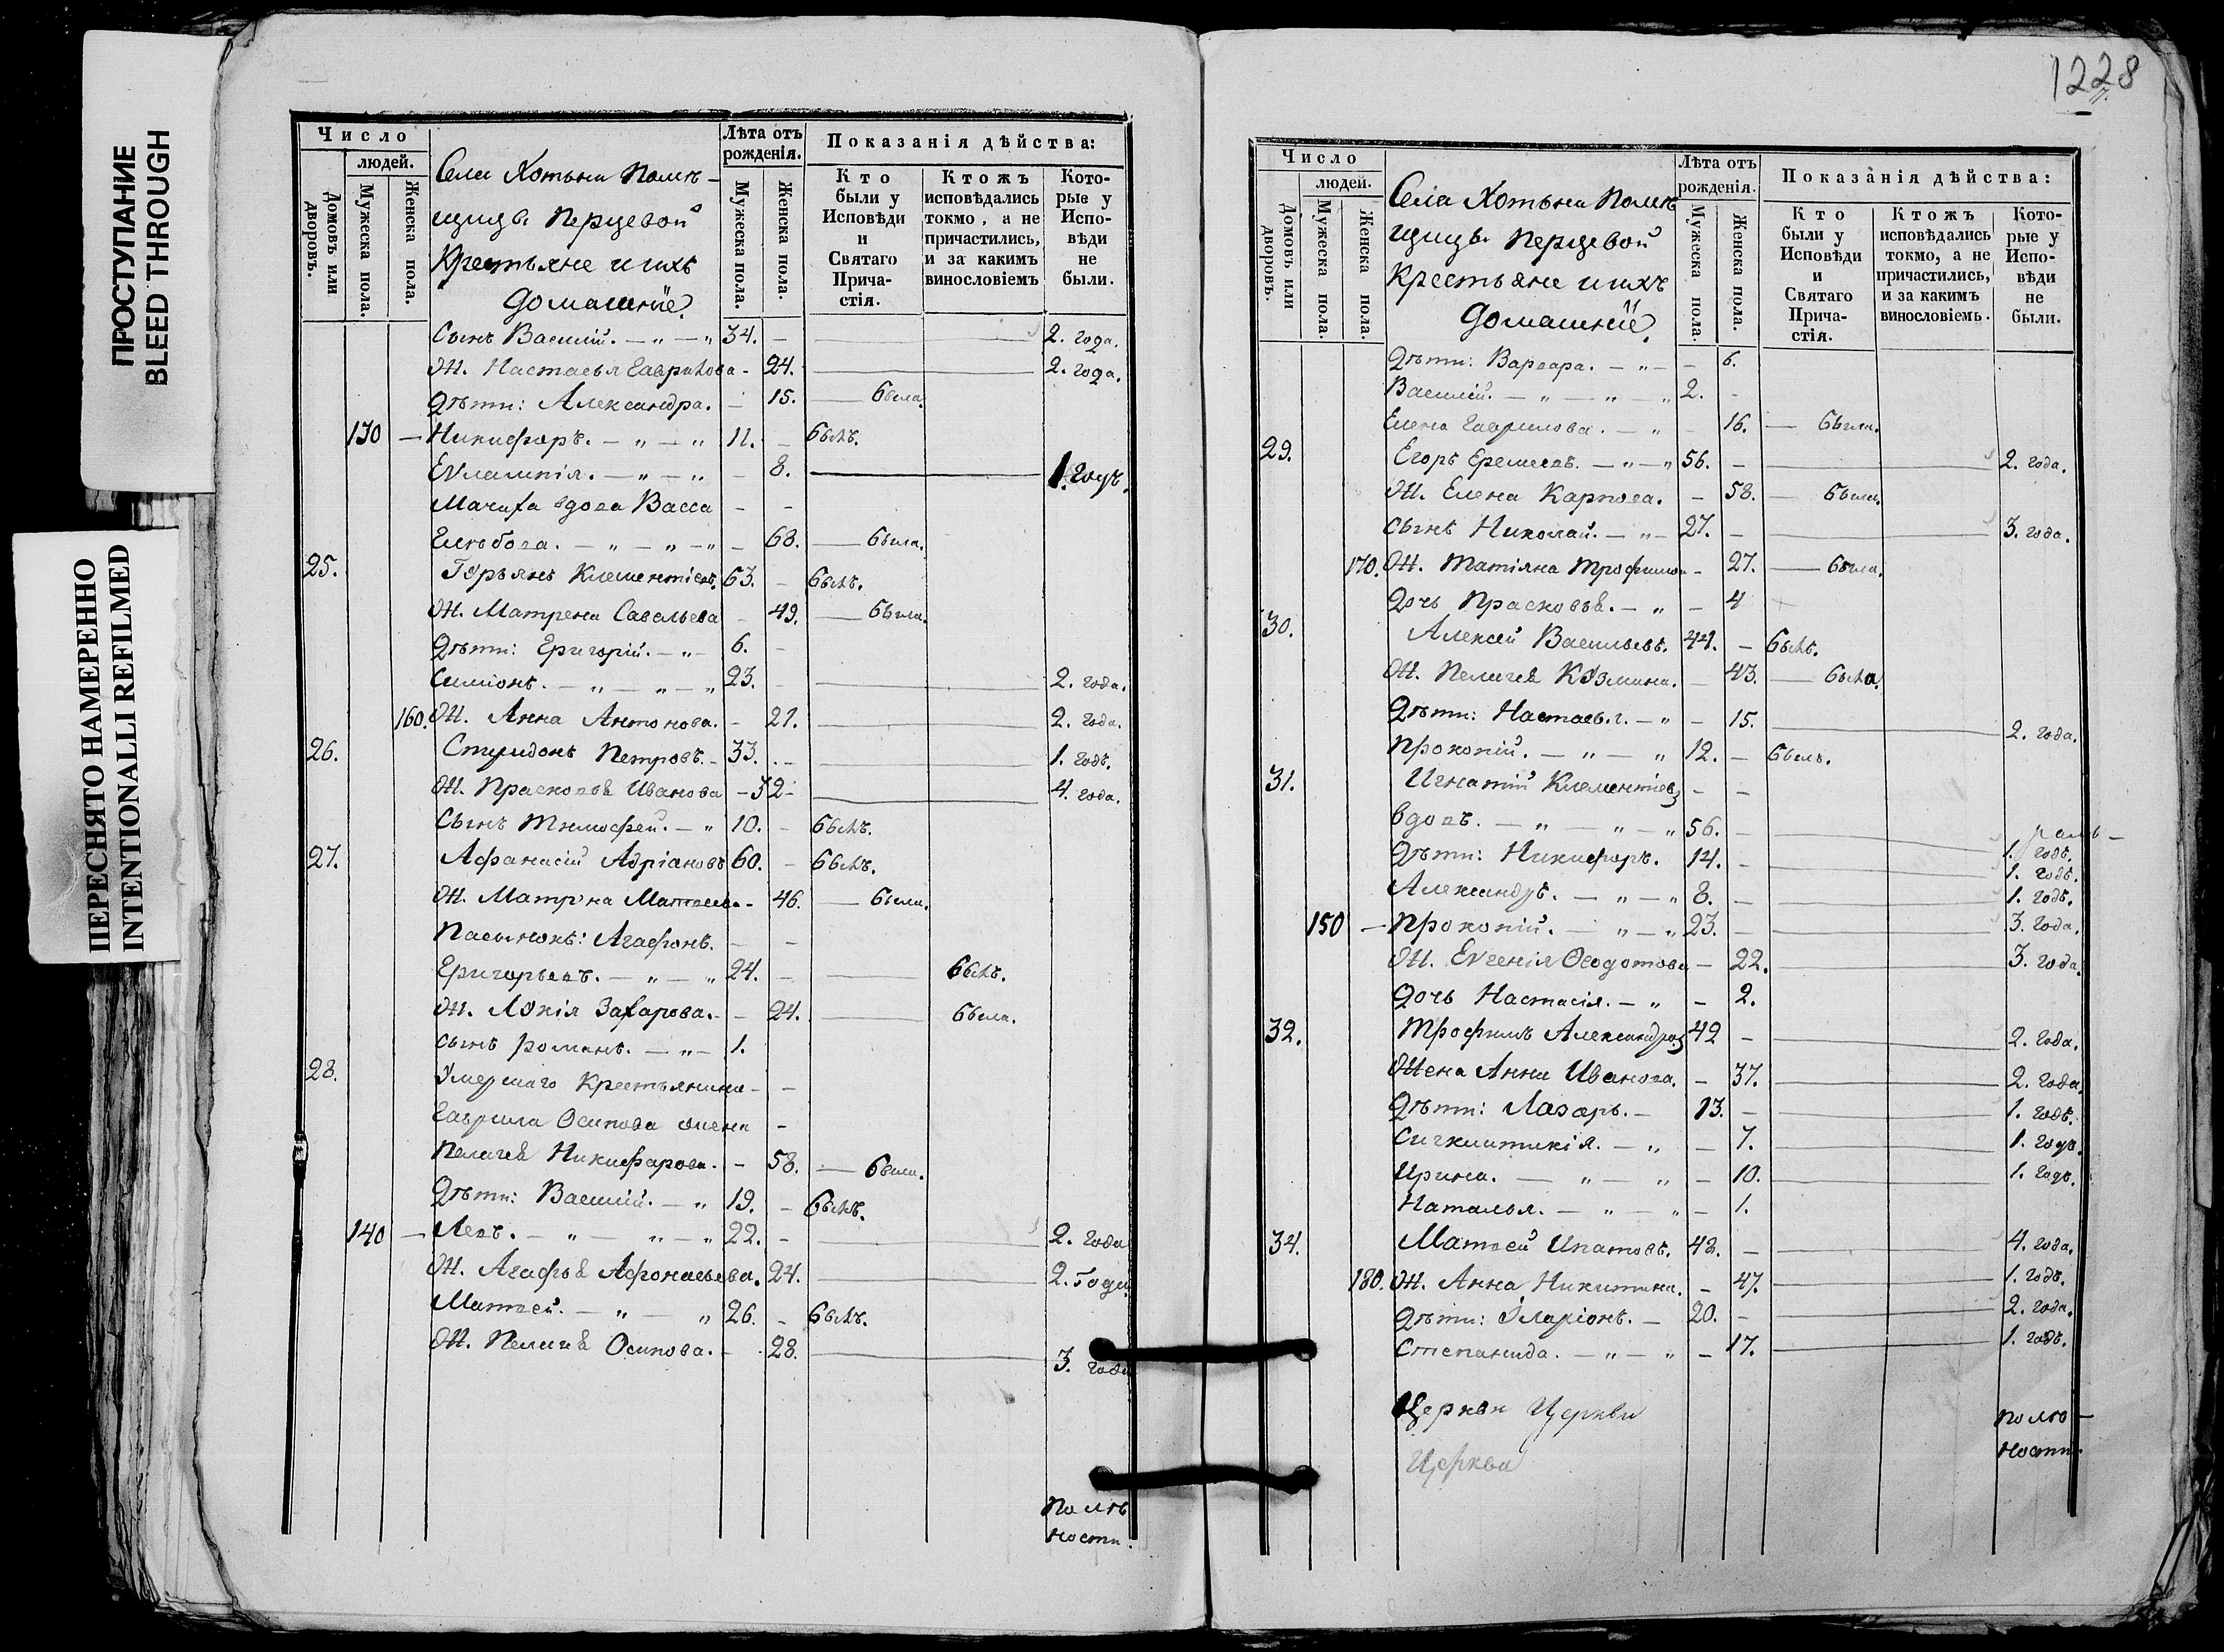 ПРОСТУПАНИЕ
BLEED THROUGH
ПЕРЕСНЯТО НАМЕРЕННО
INTENTIONALLI REFILMED
Число
людей.
Домовъ или дворовъ.
Мужеска пола.
Женска пола.
Села Хотьни Помѣ-
щицы Перцевой
Крестьяне и ихъ
домашніе.
Лѣта отъ рожденія.
Мужеска пола.
Женска пола.
Показанія дѣйства:
Кто были у Исповѣди и Святаго Прича-стія.
Ктожъ исповѣдались токмо, а не причастились, и за какимъ винословіемъ
Кото-рые у Испо-вѣди не были.
Сынъ Василій. — „ — „ 34. — 2. года.
Ж. Настасья Гаврилова - 24. 2. года.
Дѣти: Александра. — 15. — была.
130 — Никифоръ. — „ — „ 11. — былъ.
Евлампія. — „ — „ — 8. 1. годъ.
Мачиха вдова Васса — —
Глѣбова. — „ — „ — „ — 68. — была.
25. Гурьянъ Клементіевъ. 63. — былъ.
Ж. Матрена Савельева — 49. — была.
Дѣти: Григорій. — „ — 6. —
Симіонъ. — „ — „ — „ 23. — 2. года.
160. Ж. Анна Антонова. — 21. 2. года.
26. Спиридонъ Петровъ. — 33. — 1. годъ.
Ж. Прасковья Иванова — 32 — 4. года.
Сынъ Тимофей. — „ 10. — былъ.
27. Афанасій Адріановъ 60. — былъ.
Ж. Матрена Матвеева - 46. — была.
Пасынокъ: Агафонъ. — —
Григорьевъ. — „ — „ 24. — былъ.
Ж. Лукія Захарова. — 24. была.
сынъ романъ. — „ — 1.
28. Умершаго Крестьянина — —
Гаврила Осипова жена —
Пелагея Никифорова. — 58. — была.
Дѣти: Василій. — „ 19. — былъ.
140 — Левъ. — „ — „ — „ 22. — 2. года
Ж. Агафья Афонасьева. 24. 2. года
Матвей. — „ — „ 26. — былъ.
Ж. Пелагея Осипова. — 28. 3. года
По лѣ
ности.
1228
Число
людей.
Домовъ или дворовъ.
Мужеска пола.
Женска пола.
Села Хотьни Помѣ
щицы Перцевой
Крестьяне и ихъ
домашніе.
Лѣта отъ рожденія.
Мужеска пола.
Женска пола.
Показанія дѣйства:
Кто были у Исповѣди и Святаго Прича-стія.
Ктожъ исповѣдались токмо, а не причастились, и за какимъ винословіемъ.
Кото-рые у Испо-вѣди не были.
Дѣти: Варвара. — „ — — 6.
Василій. — „ — „ — „ 2. -
Елена Гаврилова. — „ — 16. — была.
29. Егоръ Еремеевъ. — „ — „ 56. — 2. года.
Ж. Елена Карпова. — 58. — была.
сынъ Николай. — „ — 27. — 3. года.
170. Ж. Татіяна Трофимов — 27. — была.
дочь Прасковья. — „ — 4
30. Алексей Васильевъ. 44. — былъ.
Ж. Пелагея Козмина. — 43. — была.
Дѣти: Настасья. — „ — 15. 2. года.
Прокопій. — „ — „ 12. — былъ.
31. Игнатій Клементіевъ — —
вдовъ. — „ — „ — „ 56. — 1. годъ.
Дѣти: Никифоръ. 14. — 1. годъ.
Александръ. — „ — „ 8. — 1. годъ.
150 — Прокопій. — „ — „ 23. — 3. года.
Ж. Евгенія Ѳеодотова — 22. 3. года.
дочь Настасія. — „ — 2.
32. Трофимъ Александровъ 42 — 2. года.
Жена Анна Иванова. — 37. 2. года
Дѣти: Лазарь. — 13. — 1. годъ.
Сигклитикія. — „ — 7. 1. годъ.
Ирина. — „ — „ — 10. 1. годъ.
Наталья. — „ — „ — 1.
34. Матвей Ипатовъ. 48. — 4. года.
180. Ж. Анна Никитина. — 47. 1. годъ.
Дѣти: Иларіонъ. — 20. — 2. года.
Степанида. — „ — „ — 17. 1. годъ.
Церкви Церкви
Церкви
по лѣ —
ности.